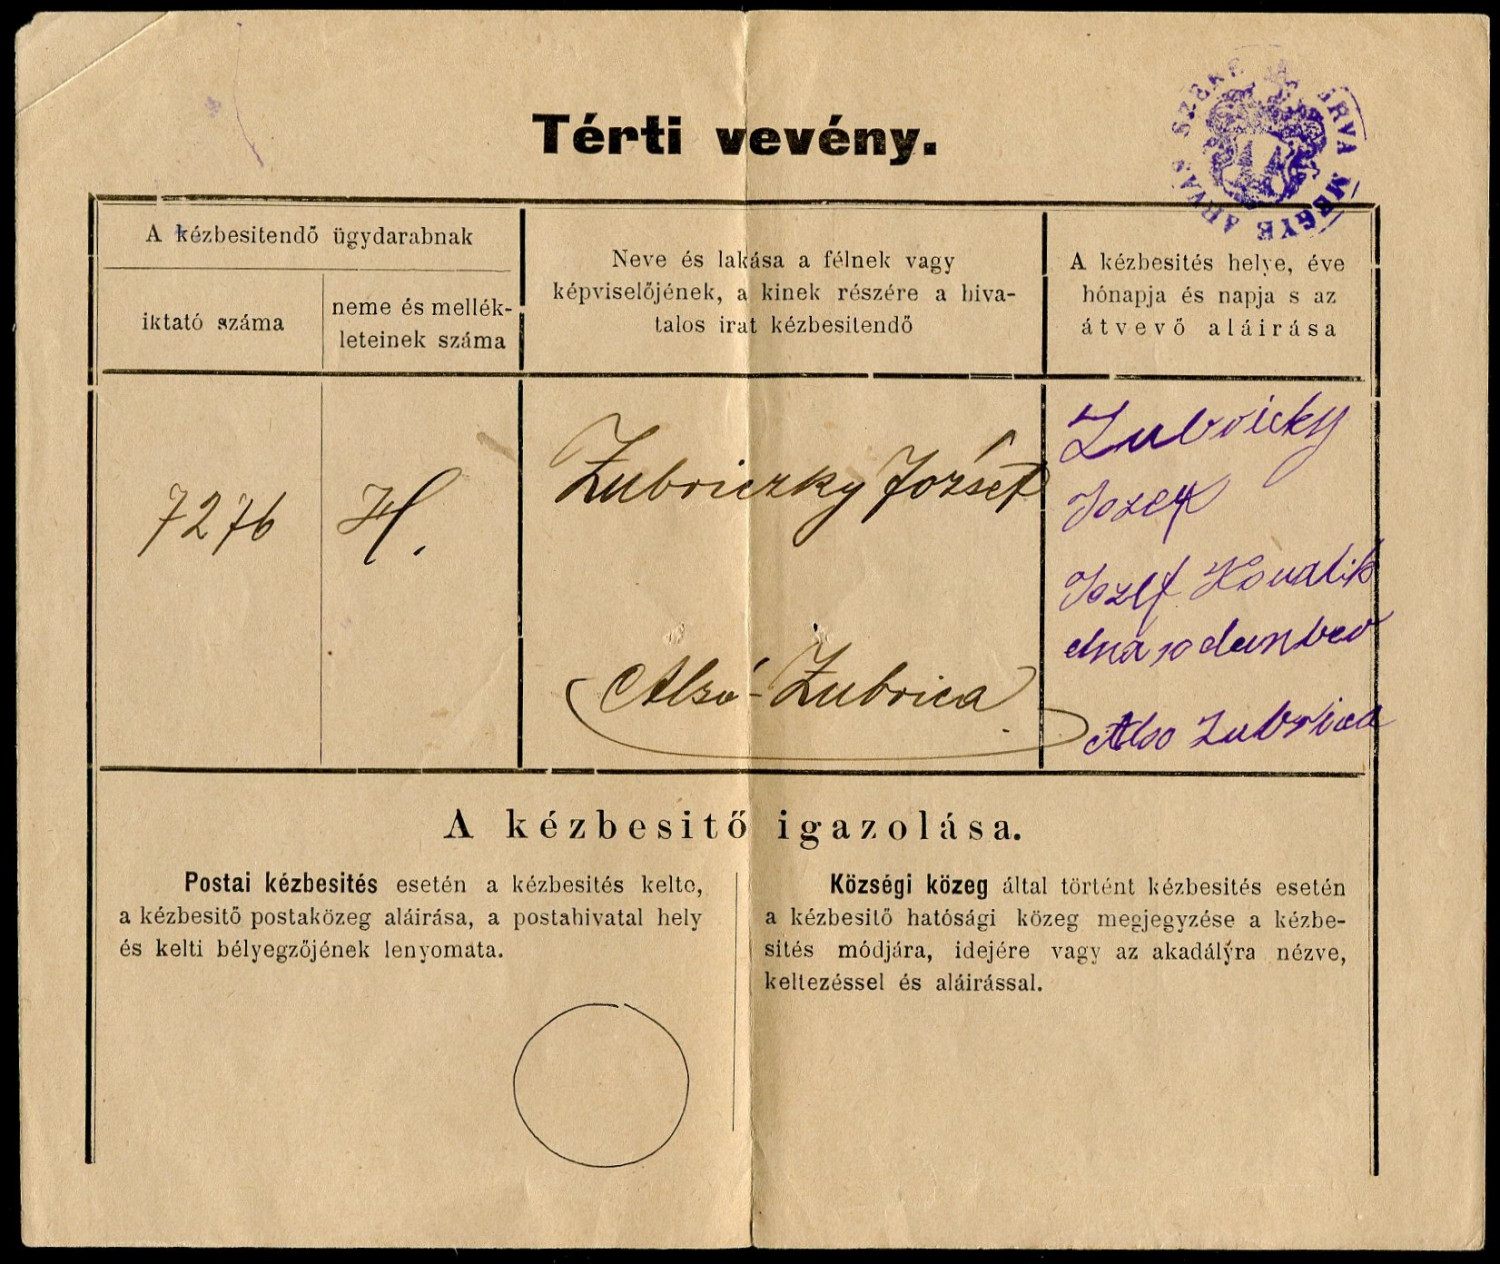 Térti vevény.
ÁRVA MEGYE ÁRVA SZÉKE
A kézbesitendő ügydarabnak
iktató száma
neme és mellék-
leteinek száma
Neve és lakása a félnek vagy
képviselőjének, a kinek részére a hiva-
talos irat kézbesitendő
A kézbesités helye, éve
hónapja és napja s az
átvevő aláirása
7276
H.
Zubriczky József
Alsó-Zubrica
Zubricky
Jozef
Jozef Kovalik
dna 10 decenber
Also Zubrica
A kézbesitő igazolása.
Postai kézbesités esetén a kézbesités kelte,
a kézbesitő postaközeg aláirása, a postahivatal hely
és kelti bélyegzőjének lenyomata.
Községi közeg által történt kézbesités esetén
a kézbesitő hatósági közeg megjegyzése a kézbe-
sités módjára, idejére vagy az akadályra nézve,
keltezéssel és aláirással.